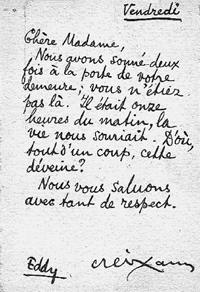 Vendredi
Chère Madame,
Nous avons sonné deux
fois à la porte de votre
demeure; vous n'étiez
pas là. Il était onze
heures du matin, la
vie nous souriait. D'où,
tout d'un coup, cette
déveine?
Nous vous saluons
avec tant de respect.
Eddy